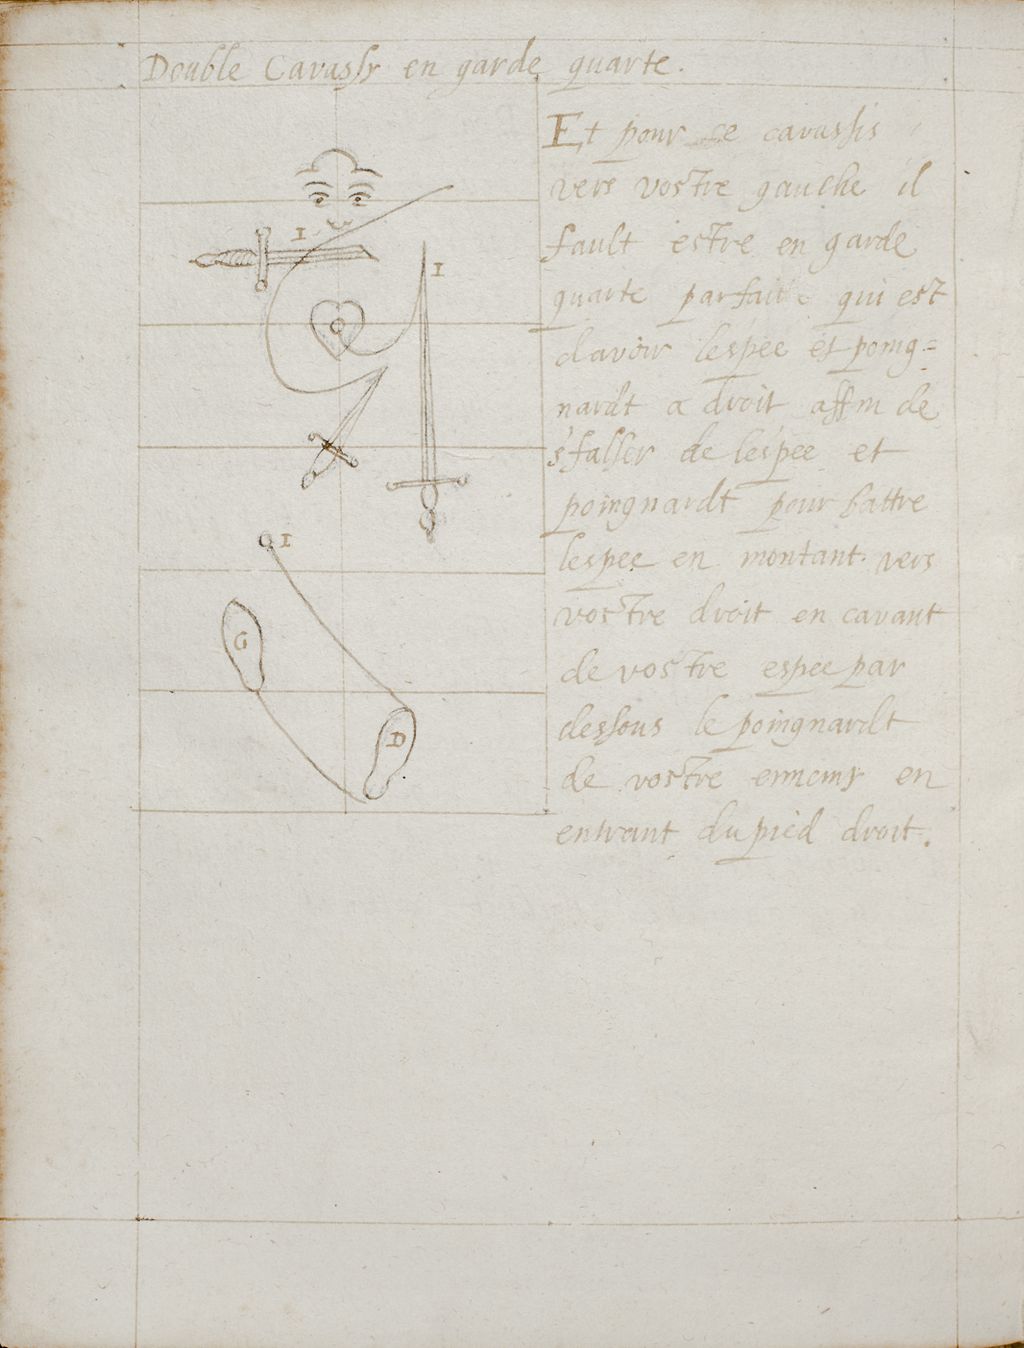 Double Cavassy en garde quarte.
Et pour ce cavassis
vers vostre gauche il
fault estre en garde
quarte parfaite qui est
davoir lespee et poing=
nardt a droit affin de
de lespee et
poingnardt pour battre
lespee en montant vers
vostre droit en cavant
de vostre espee par
dessous le poingnardt
de vostre ennemy en
entrant du pied droit.
1
1
1
G
D